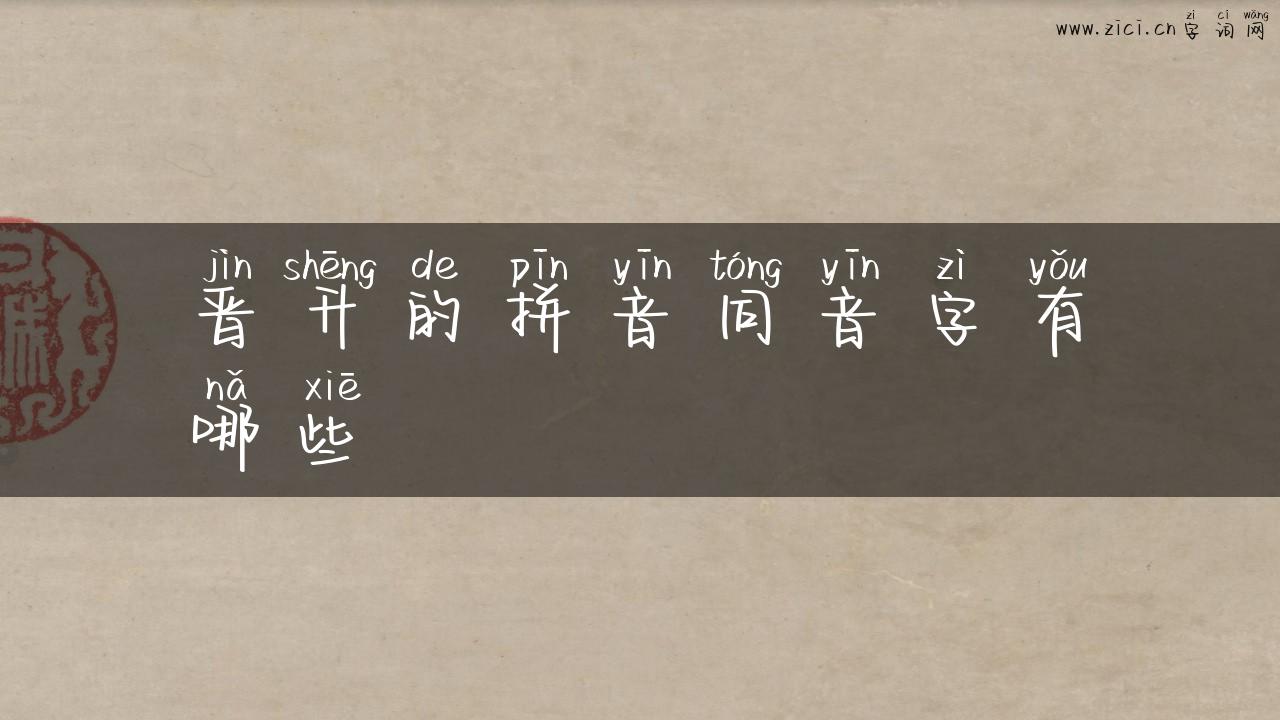 zì cí wǎng
www.zici.cn 字 词 网
jìn shēng de pīn yīn tóng yīn zì yǒu
晋 升 的 拼 音 同 音 字 有
nǎ xiē
哪 些